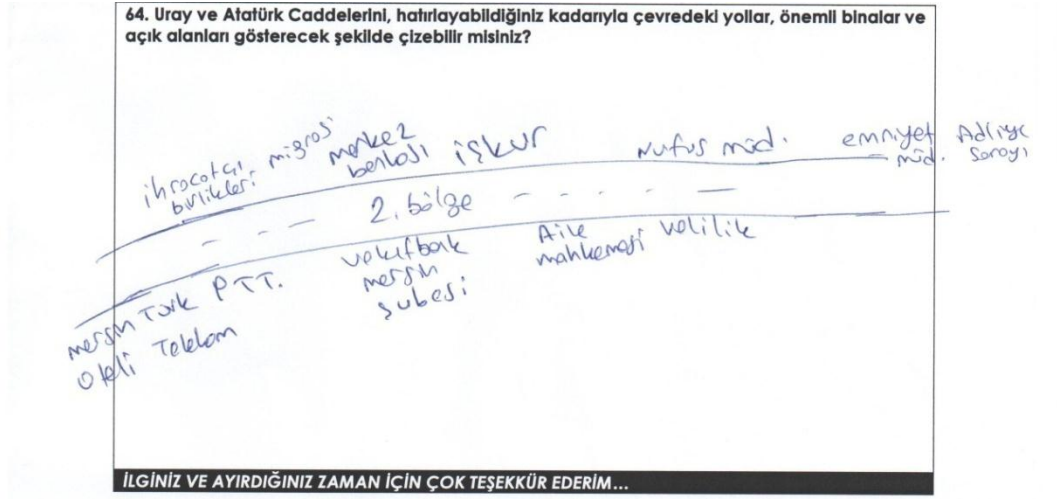 64. Uray ve Atatürk Caddelerini, hatırlayabildiğiniz kadarıyla çevredeki yollar, önemli binalar ve
açık alanları gösterecek şekilde çizebilir misiniz?
ihracatçı
birlikleri
migros
merkez
bankası
işkur
Nufus müd.
emniyet
müd.
Adliye
Sarayı
2. bölge
mersin
oteli
Türk
Telekom
PTT.
vakıfbank
mersin
şubesi
Aile
mahkemesi
valilik
İLGİNİZ VE AYIRDIĞINIZ ZAMAN İÇİN ÇOK TEŞEKKÜR EDERİM...